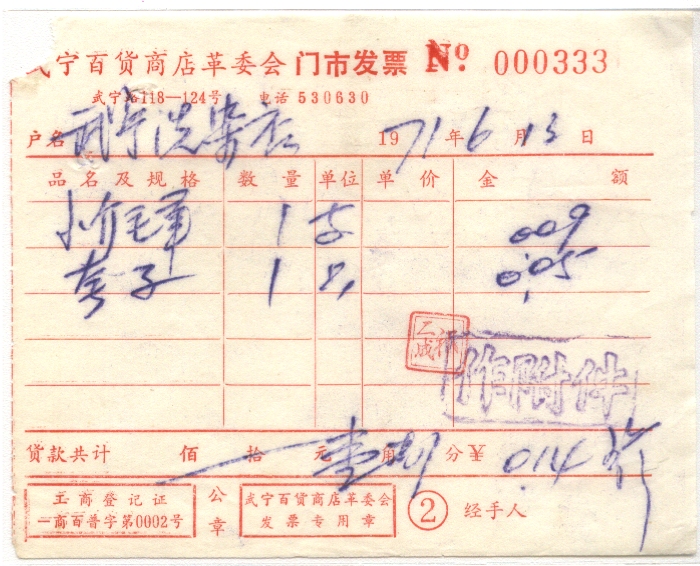 武宁百货商店革委会 门市发票 No. 000333
武宁路118—124号 电话 530630
户名 武宁洗染店 1971年6月13日
品名及规格 数量 单位 单价 金额
1 支 0.09
套子 1 只 0.05
作附件
贷款共计 佰 拾 元 角 分 ¥ 0.14
工商登记证
一商百普字第0002号
公章
武宁百货商店革委会
发票专用章
② 经手人